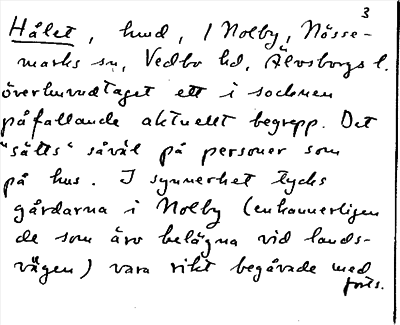 3
Hålet, hmd, i Nolby, Nösse-
marks sn, Vedbo hd, Älvsborgs l.
överhuvudtaget ett i socknen
påfallande aktuellt begrepp. Det
"sätts" såväl på personer som
på hus. I synnerhet tycks
gårdarna i Nolby (enkannerligen
de som äro belägna vid lands-
vägen) vara rikt begåvade med
forts.